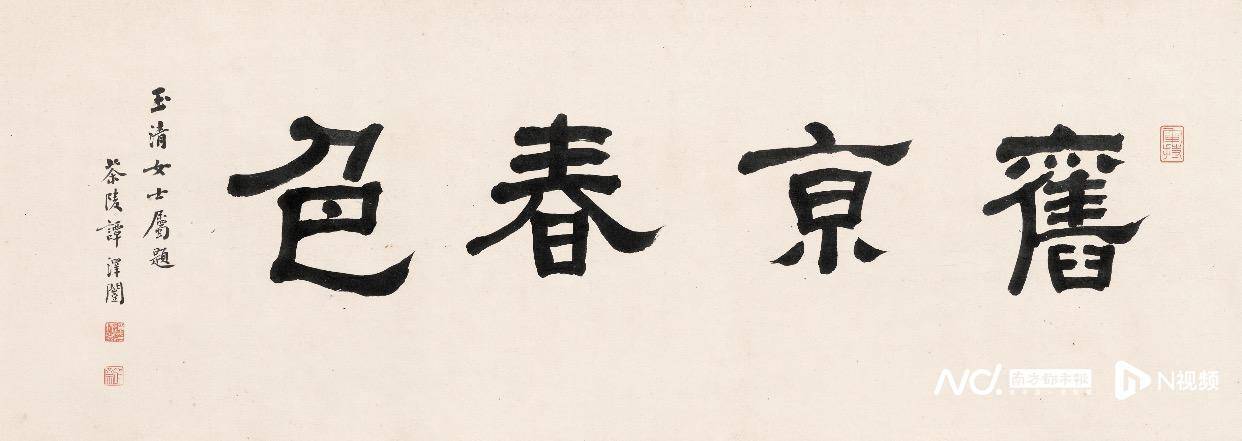 舊京春色
玉清女士屬題
茶陵譚澤闓
南方都市报
N视频